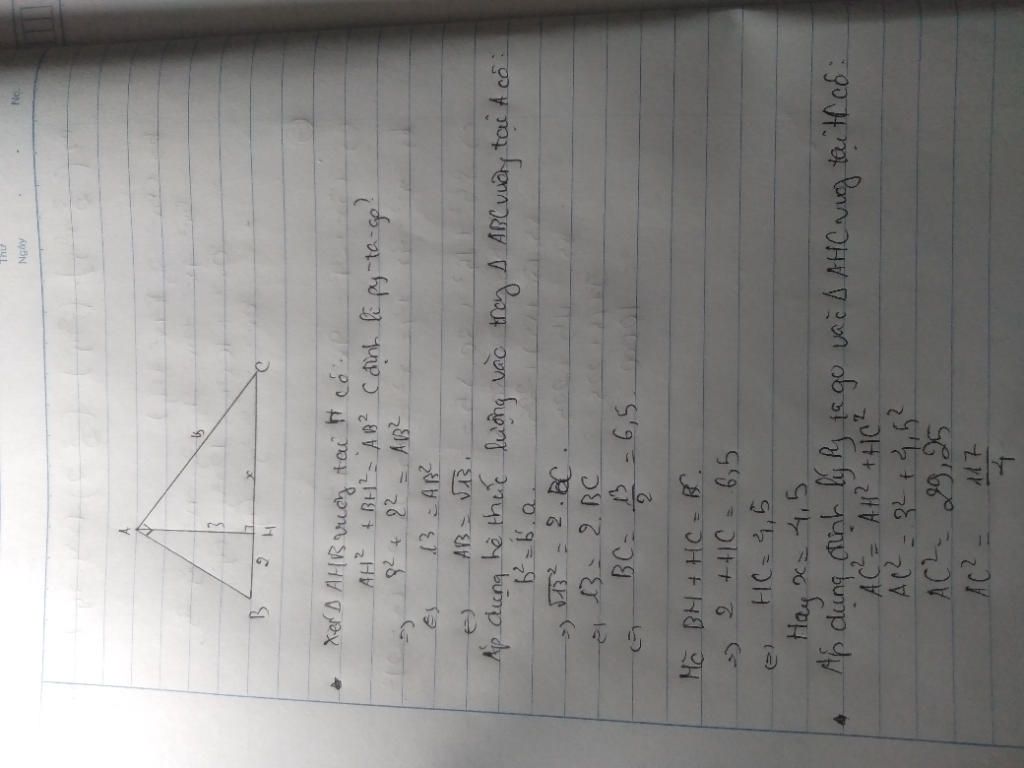 Thứ
Ngày
No.
A
B
3
2
x
B
H
C
Xét Δ AHB vuông tại H có:
AH² + BH² = AB² (định lí py-ta-go)
=> 3² + 2² = AB²
<=> 13 = AB²
<=> AB = √13.
Áp dụng hệ thức lượng vào trong Δ ABC vuông tại A có:
b² = b'. a
=> √13² = 2. BC.
<=> 13 = 2. BC
<=> BC = 13/2 = 6,5
Mà BH + HC = BC.
=> 2 + HC = 6,5
<=> HC = 4,5
Hay x = 4,5
Áp dụng định lý Py ta go vài Δ AHC vuông tại H có:
AC² = AH² + HC²
AC² = 3² + 4,5²
AC² = 29,25
AC² = 117/4